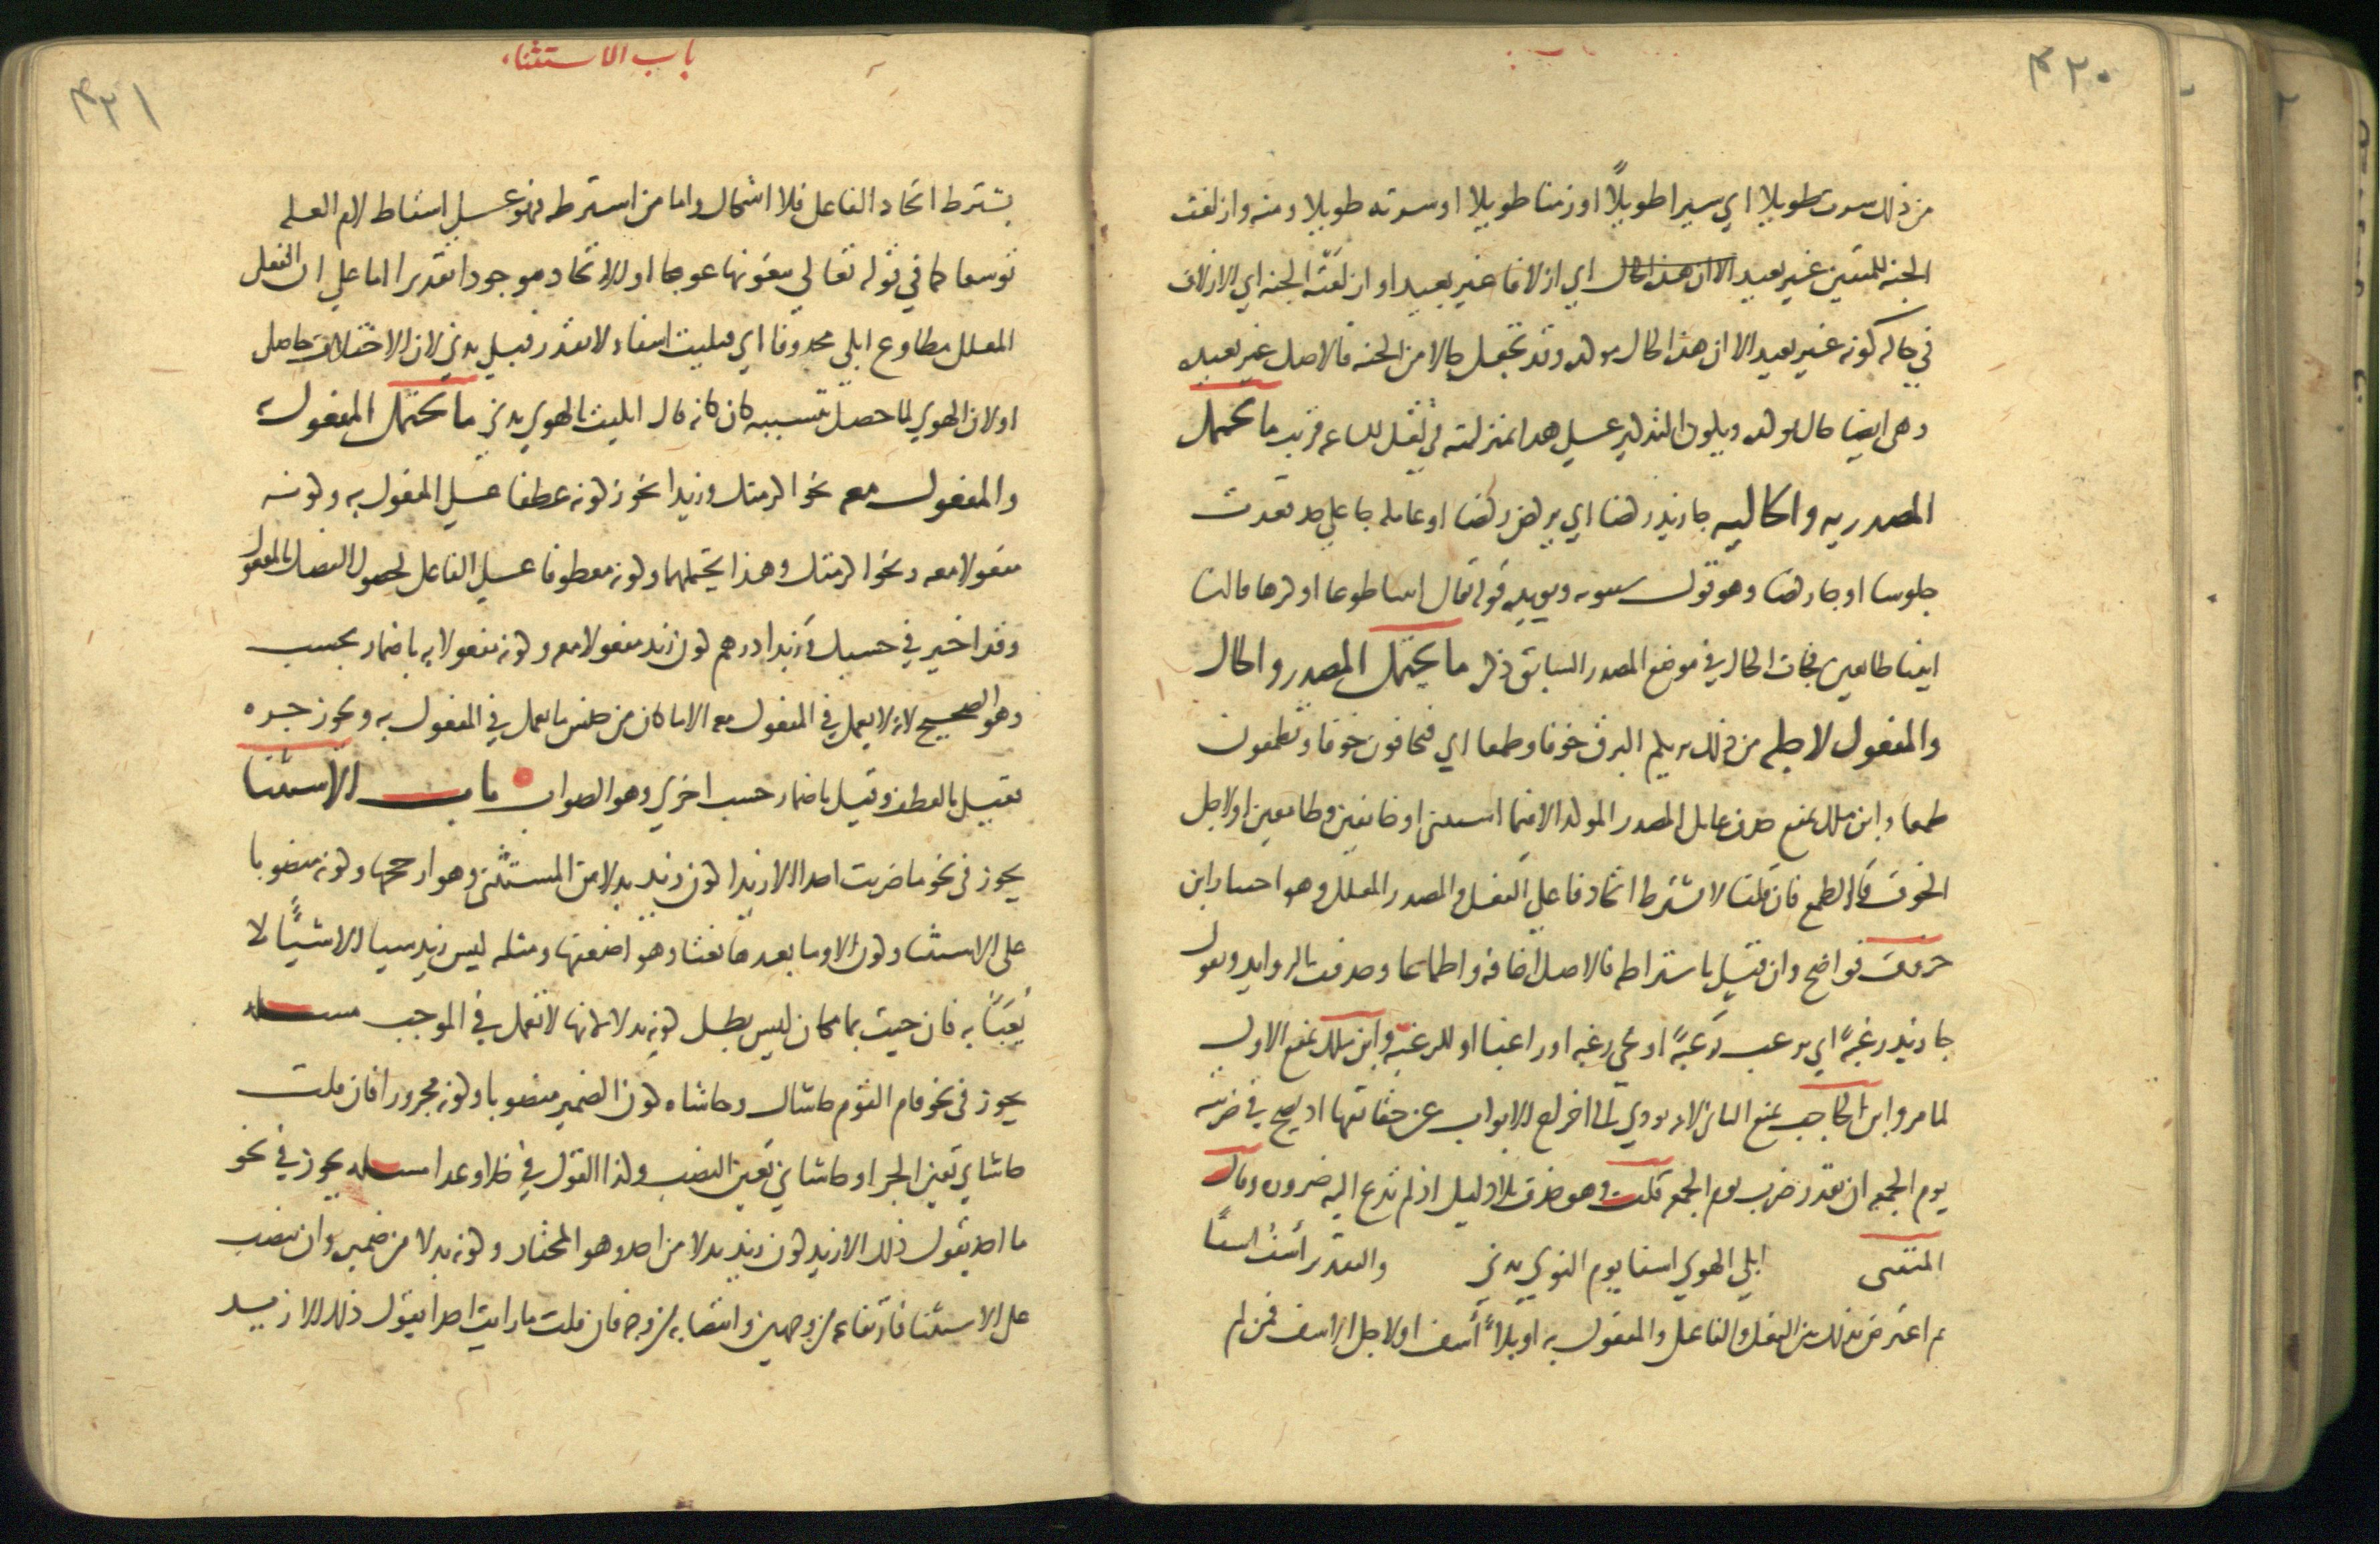 ٤٢٠
من ذلك سرت طويلا اي سيرا طويلاً او زمنا طويلا او سرته طويلا ومنه وازلفت
الجنه للمتقين غير بعيد الا ان هذا الحال اي ازلافا غير بعيد او ازلفَتْه الجنه اي الازلاف
في حاله كونه غير بعيد الا ان هذا الحال مولده وقد تجعل حالا من الجنه فالاصل غير بعيده
وهي ايضا حال مولده ويكون التذكير على هذا بمنزلته في لعل الساعه قريب ما يحتمل
المصدريه والحاليه جا زيد ركضا اي يركض ركضا او عامله جا على حد قعدت
جلوسا او جا راكضا وهو قول سيبويه ويويده قوله تعالى ايتيا طوعا او كرها قالتا
اتينا طايعين فجات الحال في موضع المصدر السابق ذكره ما يحتمل المصدر والحال
والمفعول لاجله من ذلك يريكم البرق خوفا وطمعا اي فتخافون خوفا وتطمعون
طمعا وابن مالك يمنع حذف عامل المصدر الموكد الا فيما استثنى او خايفين وطامعين او لاجل
الخوف والطمع فان قلنا لا يشترط اتحاد فاعلي الفعل والمصدر المعلل وهو اختيار ابن
خروف فواضح وان قيل باشتراطه فالاصل اخافه واطماعا وحذفت الزوايد وتقول
جا زيد رغبةً اي يرغب رَغبةً او مجي رغبه او راغبا او للرغبه وابن مالك يمنع الاول
لما مر وابن الحاجب يمنع الثاني لانه يودي الى اخراج الابواب عن حقايقها اذ يصح في ضربته
يوم الجمعه ان يقدر ضرب يوم الجمعه قلت وهو حذف بلا دليل اذ لم تدع اليه ضروره وقال
المتنبي ابلى الهوى اسفا يوم النوى بدني والتقدير آسَفُ اسفًا
ثم اعترض بذلك بين الفعل والفاعل والمفعول به او بلاءً أسف او لاجل الاسف فمن لم
باب الاستثناء
٤٢١
يشترط اتحاد الفاعل فلا اشكال واما من اشترطه فهو على اسقاط لام العله
توسعا كما في قوله تعالى يبغونها عوجا او الاتحاد موجود تقديرا اما على ان الفعل
المعلل مطاوع ابلى محذوفا اي فبليت اسفا ولا تقدر فبلي بدني لان الاختلاف حاصل
او لان الهوى لما حصل بتسببه كان كانه قال ابليت بالهوى بدني ما يحتمل المفعول به
والمفعول معه نحو اكرمتك وزيدا يجوز كونه عطفا على المفعول به وكونه
مفعولا معه ونحو اكرمتك وهذا يحتملهما وكونه معطوفا على الفاعل لحصول الفصل بالمفعول
وقد اخير في حسبك وزيدا درهم كون زيد مفعولا معه وكونه مفعولا به باضمار يحسب
وهو الصحيح لانه لا يعمل في المفعول معه الا ما كان من جنس ما يعمل في المفعول به ويجوز جره
فقيل بالعطف وقيل باضمار حسب اخرى وهو الصواب باب الاستثنا
يجوز في نحو ما ضربت احدا الا زيدا كون زيد بدلا من المستثنى وهو ارجحها وكونه منصوبا
على الاستثنا وكون الا وما بعدها نعتا وهو اضعفها ومثله ليس زيد شيا الا شيئًا لا
يُعْبَأُ به فان جيت بما مكان ليس بطل كونه بدلا لانها لا تعمل في الموجب مسله
يجوز في نحو قام القوم حاشاك وحاشاه كون الضمير منصوبا وكونه مجرورا فان قلت
حاشاي تعين الجر او حاشاني تعين النصب وكذا القول في خلا وعدا مسله يجوز في نحو
ما احد يقول ذلك الا زيد كون زيد بدلا من احد وهو المختار وكونه بدلا من ضميره وان ينصب
على الاستثنا فارتفاعه من وجهين وانتصابه من وجه فان قلت ما رايت احدا يقول ذلك الا زيد